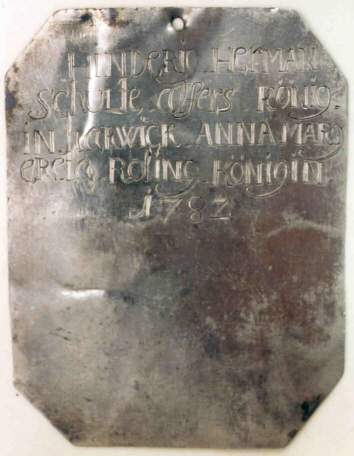 HINDERIC HERMAN
Schulte, assers KÖNIG
IN HERWICK ANNA MARG
ERETA ROLING KÖNIGIN
1782